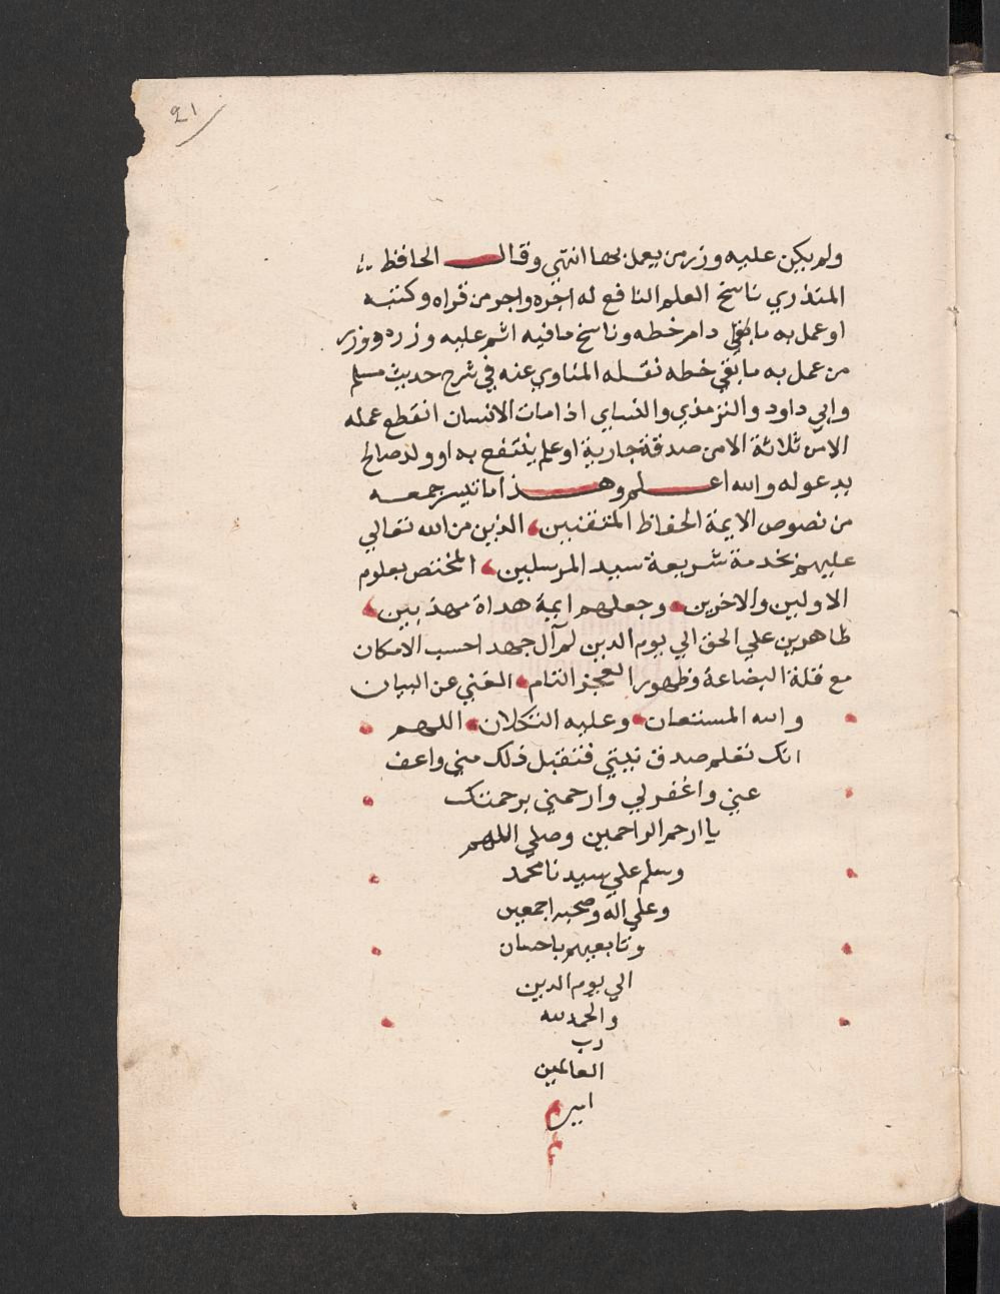 21
ولم يكن عليه وزر من يعمل بها انتهي وقال الحافظ
المنذري ناسخ العلم النافع له اجره واجر من قراه وكتبه
او عمل به ما بقي دام خطه وناسخ ما فيه اثم عليه وزره ووزر
من عمل به ما بقي خطه نقله المناوي عنه في شرح حديث مسلم
وابي داود والترمذي والنساي اذا مات الانسان انقطع عمله
الا من ثلاثة الا من صدقة جارية او علم ينتفع به او ولد صالح
يدعو له والله اعلم وهذا ما تيسر جمعه
من نصوص الايمة الحفاظ المتقنين الذين من الله تعالي
عليهم بخدمة شريعة سيد المرسلين المختص بعلوم
الاولين والاخرين وجعلهم ايمة هداة مهذبين
ظاهرين علي الحق الي يوم الدين لم آل جهدا حسب الامكان
مع قلة البضاعة وظهور العجز التام الغني عن البيان
والله المستعان وعليه التكلان اللهم
انك تعلم صدق نيتي فتقبل ذلك مني واعف
عني واغفر لي وارحمني برحمتك
يا ارحم الراحمين وصلي اللهم
وسلم علي سيدنا محمد
وعلي اله وصحبه اجمعين
وتابعيهم باحسان
الي يوم الدين
والحمد لله
رب
العالمين
امين